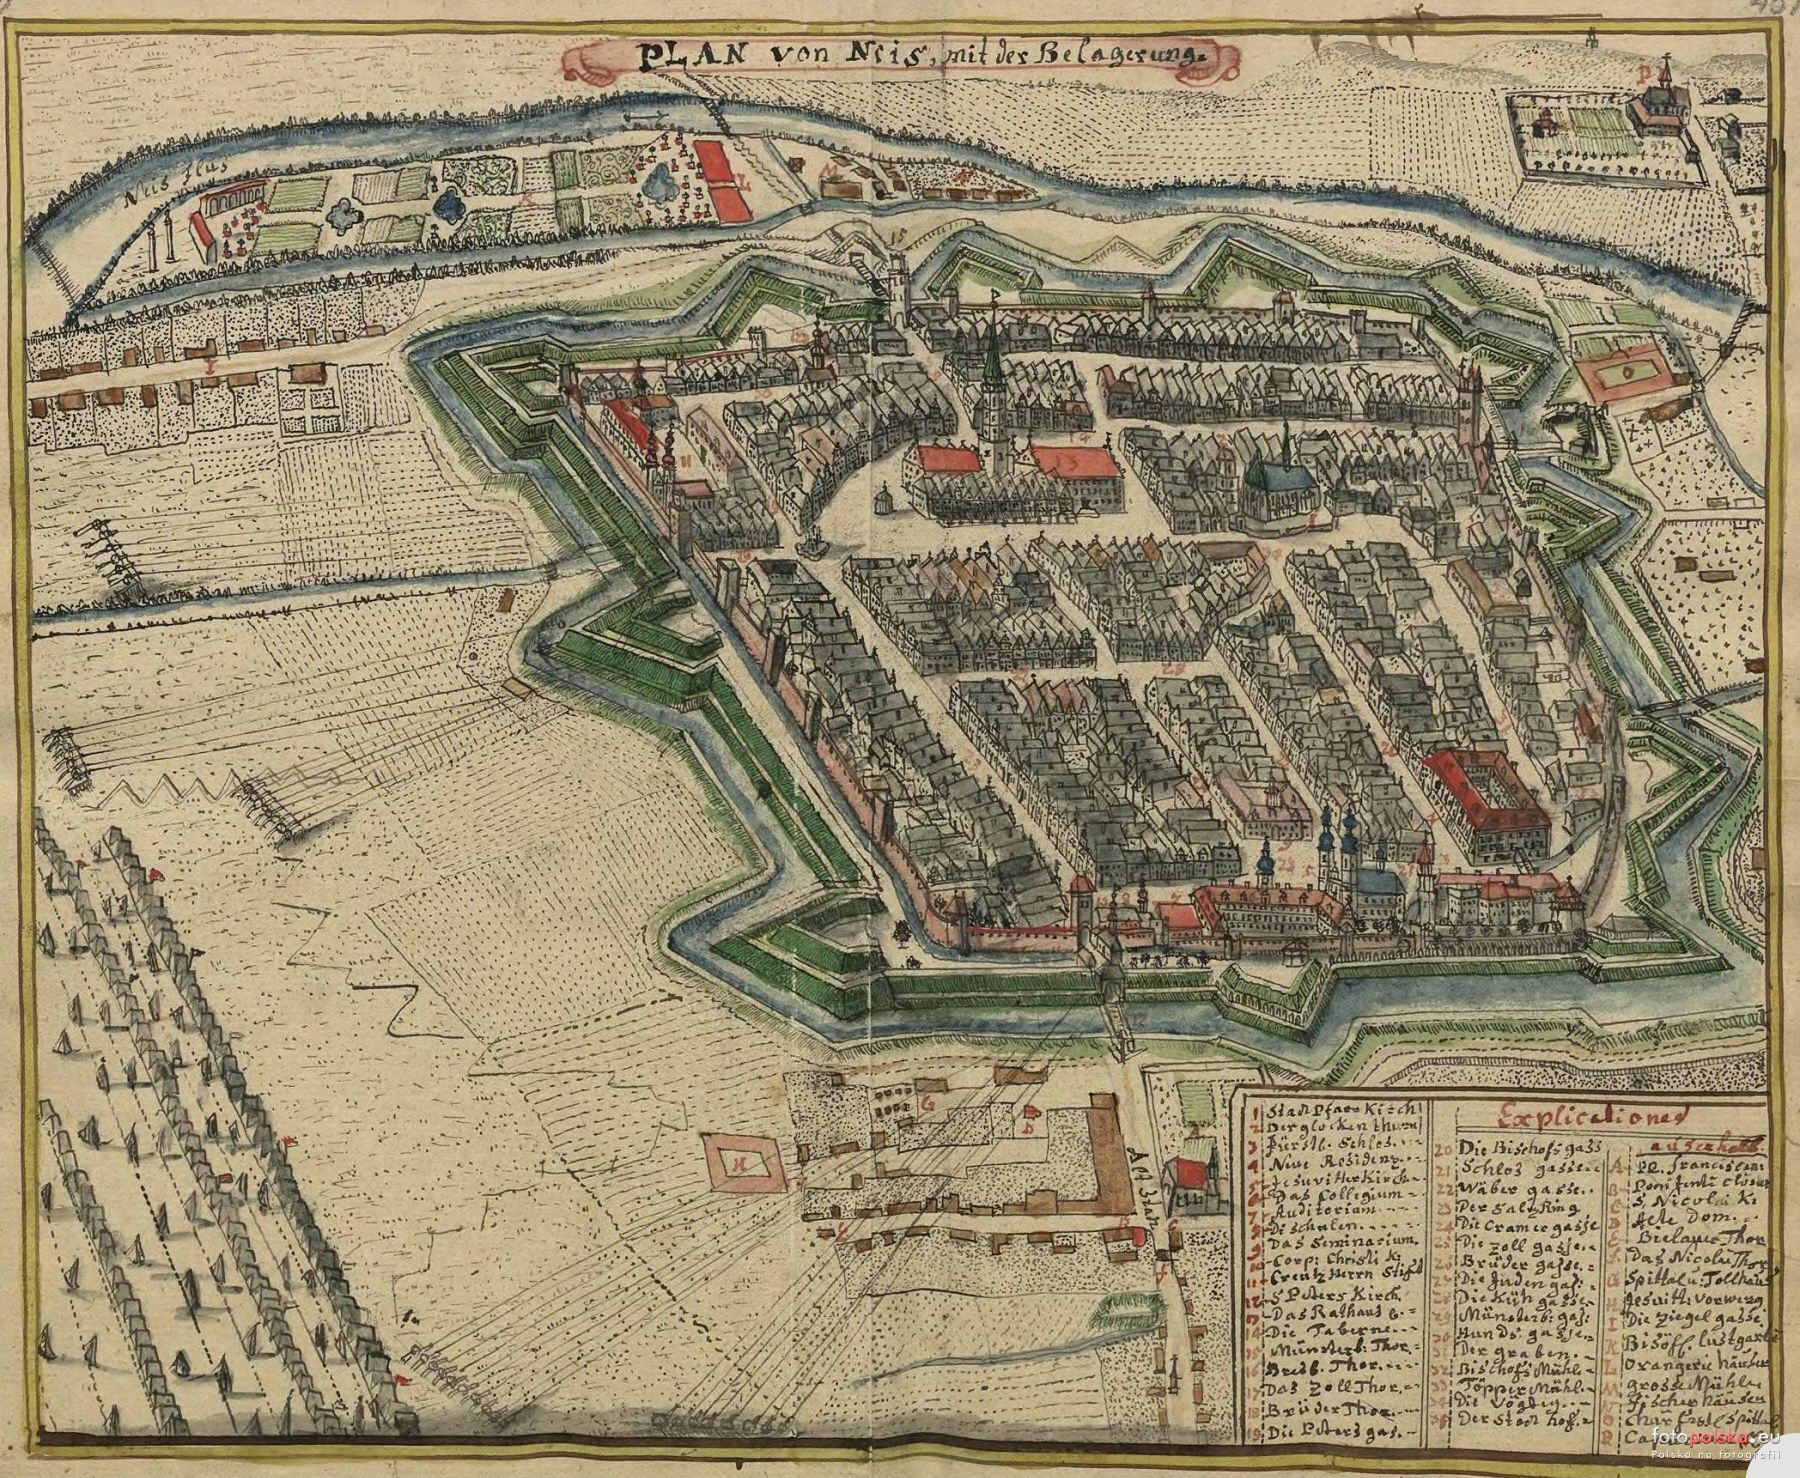 PLAN von Neis, mit der Belagerung.
Neis flus
K
L
M
I
15
13
14
11
1
12
G
D
H
A
B
C
Alt Stat
Explicationes
1 Stadt Pfarr Kirch
2 Der glocken thurn
3 Fürstl. Schlos
4 Neue Residenz
5 Jesuvitter Kirch
6 Das Collegium
7 Auditorium
8 Di schulen
9 Das Seminarium
10 Corp: Christi K:
11 Creutz Herrn Stifft
12 S Peters Kirch
13 Das Rathaus
14 Die Taberne
15 Münsterb: Thor
16 Bresl. Thor
17 Das Zoll Thor
18 Brüder Thor
19 Die Peters gas
20 Die Bischofs gass
21 Schlos gasse
22 Wäber gasse
23 Der Saltz Ring
24 Die Cramer gasse
25 Die Zoll gasse
26 Brüder gasse
27 Die Juden gas:
28 Die Küh gasse
29 Münsterb: gas:
30 Hunds gasse
31 Der graben
32 Bischofs Mühl
33 Töpper Mühl
34 Die Vogtey
35 Der Stadt hof
auserhalb
A PP. Franciscani
B
C S Nicolai K:
D Alte Dom
E Bielauer Thor
F Das Nicolai Thor
G Spittal u: Tollhaus
H Jesuitt: vorwerg
I Die Ziegel gasse
K Bisoff lustgarte
L Orangerie häuser
M grosse Mühle
N Fischer häuser
O Churfürstl Spittal
P
fotopolska.eu
Polska na fotografii